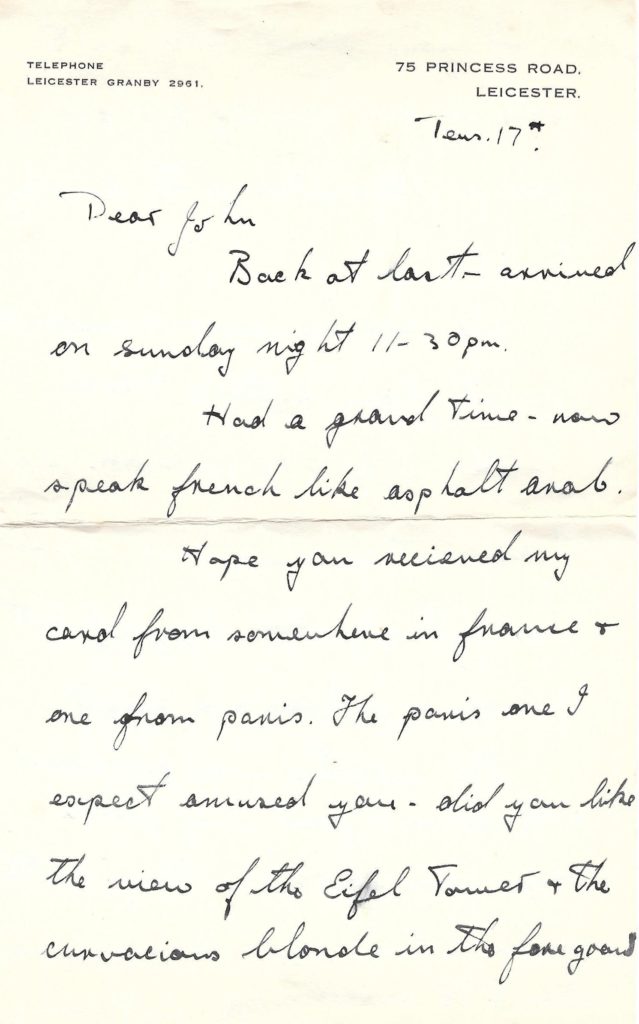 TELEPHONE
LEICESTER GRANBY 2961.
75 PRINCESS ROAD.
LEICESTER.
Teus. 17th.
Dear John
Back at last - arrived
on sunday night 11-30pm.
Had a grand time - now
speak french like asphalt arab.
Hope you recieved my
card from somewhere in france &
one from paris. The paris one I
expect amused you - did you like
the view of the Eifel Tower & the
curvacious blonde in the fore goand